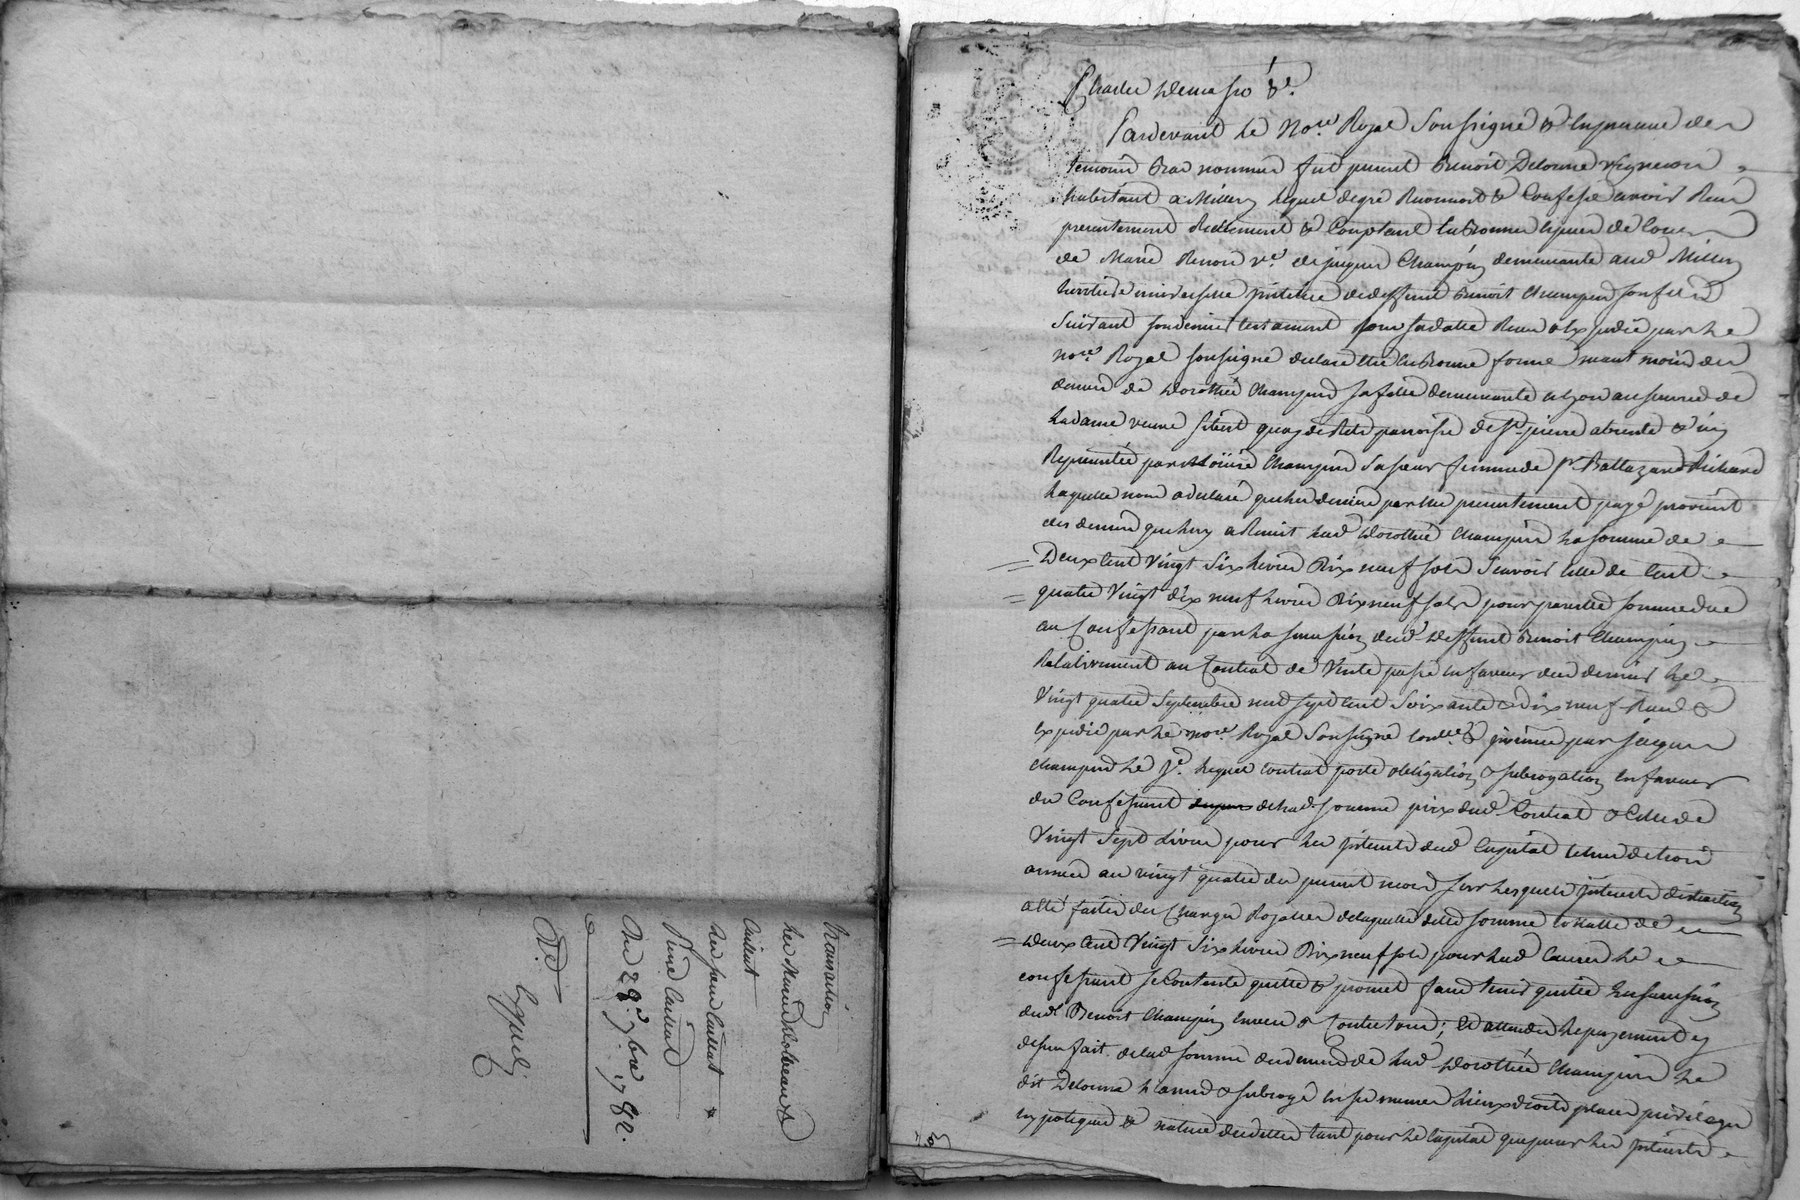 transaction
Les
Caillat
pierre Caillat
Du 28e 7bre 1782.
Expedié
Pardevant le No.re Royal Soussigné & En presence des
temoins Bas nommés fut present Benoit Delorme vigneron
habitant a Millery lequel de gré Reconnoit & Confesse avoir Reçu
presentement Réellement & Comptant En Bonnes Especes de Cours
de Marie Renon v.e de jacques Champin demeurante aud. Millery
heritiere universelle de deffunt Benoit Champin son fils
Suivant son dernier testament Reçu & Expedié par Le
no.re Royal soussigné En Bonne forme des
deniers de Dorothée Champin sa fille demeurante a Lyon au service de
Madame veuve paroisse de St. pierre absente & icy
Representée par Champin Sa soeur femme de Baltazard Richard
Laquelle nous a declaré que les deniers par elle presentement payé provient
des deniers que luy a Remit Lad. Dorothée Champin La somme de
Deux Cent Vingt Six Livres Dix neuf sols Scavoir Celle de Cent
quatre Vingt dix neuf Livres Dix neuf sols pour pareille somme due
au Confessant par La succession dud. deffunt Benoit Champin
Relativement au Contrat de Vente passé en faveur dud dernier Le
Vingt quatre Septembre mil sept Cent Soixante & Dix neuf Reçu &
Expedié par Le no.re Royal Soussigné par jacques
Champin Lequel Contrat porte obligation & subrogation En faveur
du Confessant de Lad. somme prix dud. Contrat & Celle de
Vingt Sept Livres pour Les interets dud Capital de trois
années au vingt quatre du present mois sur Lesquels interets distraction
a été faite des Charges Royalles de laquelle ditte somme totalle de
Deux Cent Vingt Six Livres Dix neuf sols pour Lad. Cause Le
confessant se Contente quitte & promet faire tenir quitte La succession
dud. Benoit Champin Envers & Contre tous; Et attendu Le payement
de Lad somme des deniers de Lad. Dorothée Champin Le
dit Delorme L'a mis & subrogé En ses mêmes Lieux droits places privileges
hypoteques & nature des dettes tant pour Le Capital que pour Les interets